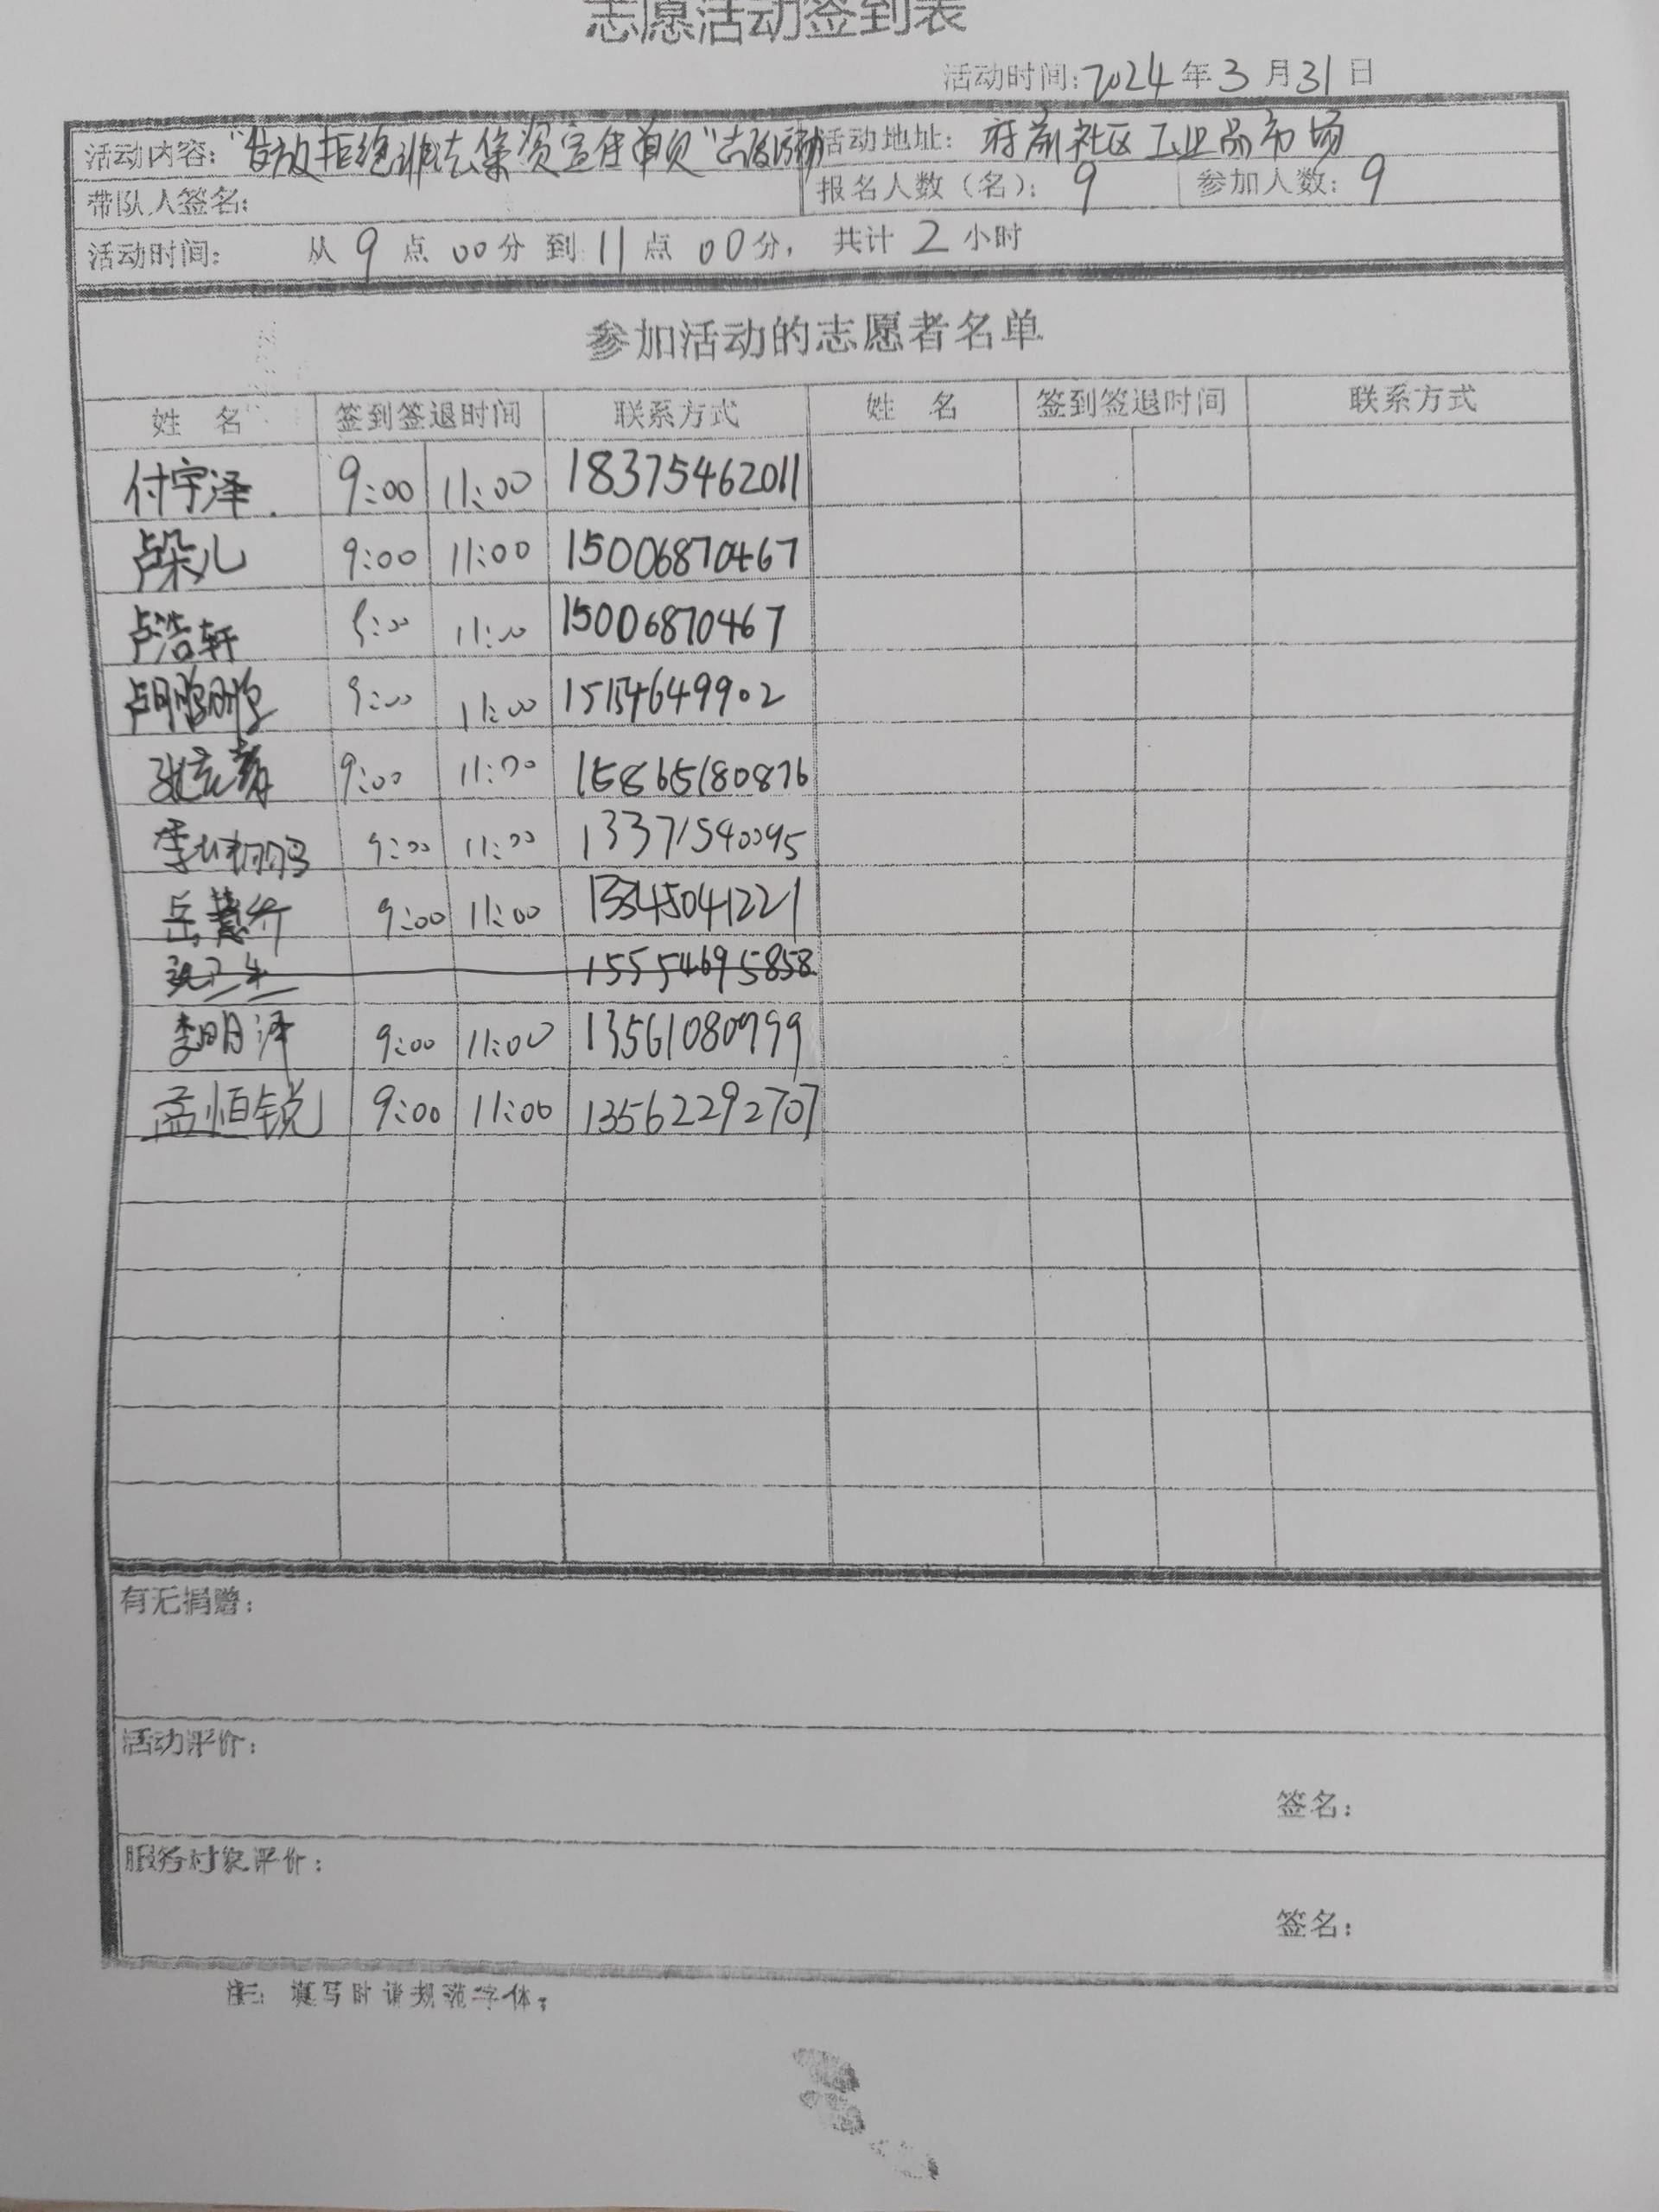 志愿活动签到表
活动时间:2024年3月31日
活动内容:"发放拒绝非法集资宣传单页"志愿活动 活动地址: 府前社区工业品市场
带队人签名: 报名人数(名): 9 参加人数: 9
活动时间: 从9点00分到11点00分, 共计2小时
参加活动的志愿者名单
姓 名 签到签退时间 联系方式 姓 名 签到签退时间 联系方式
付宇泽 9:00 11:00 18375462011
卢朵儿 9:00 11:00 15006870467
卢浩轩 9:00 11:00 15006870467
9:00 11:00
9:00 11:00 15865180876
9:00 11:00 13371540095
岳 9:00 11:00 13345041221
15554695858
李明泽 9:00 11:00 13561080999
孟恒锐 9:00 11:00 13562292707
有无捐赠:
活动评价:
签名:
服务对象评价:
签名:
注: 填写时请规范字体;